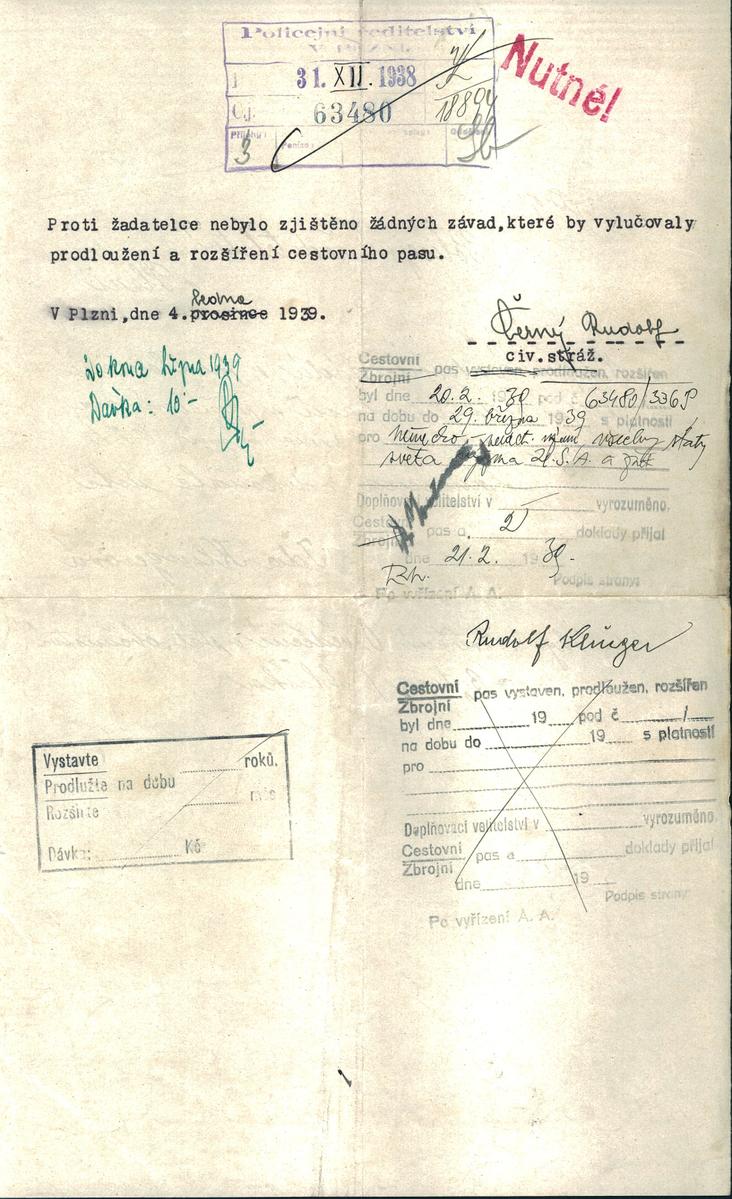 Policejní ředitelství
V PLZNI.
31. XII. 1938
Čj. 63480
18894
Příloh:
3
Nutné!
Proti žadatelce nebylo zjištěno žádných závad,které by vylučovaly
prodloužení a rozšíření cestovního pasu.
ledna
V Plzni,dne 4.prosince 1939.
Černý Rudolf
civ.stráž.
Do konce října 1939
Dávka: 10-
Cestovní
Zbrojní
pas vystaven, prodloužen, rozšířen
byl dne 20.2. 1939 pod č 63480/
na dobu do 29. března 1939 s platností
pro Německo
světa U.S.A. a
Doplňovací velitelství v vyrozuměno.
Cestovní
Zbrojní
pas a 2 doklady přijal
dne 21.2. 1939.
Podpis strany:
Po vyřízení A. A.
Rudolf Klinger
Cestovní
Zbrojní
pas vystaven, prodloužen, rozšířen
byl dne 19 pod č /
na dobu do 19 s platností
pro
Doplňovací velitelství v vyrozuměno.
Cestovní
Zbrojní
pas a doklady přijal
dne 19
Podpis strany:
Po vyřízení A. A.
Vystavte roků.
Prodlužte na dobu
Rozšiřte měs
Dávka: Kč